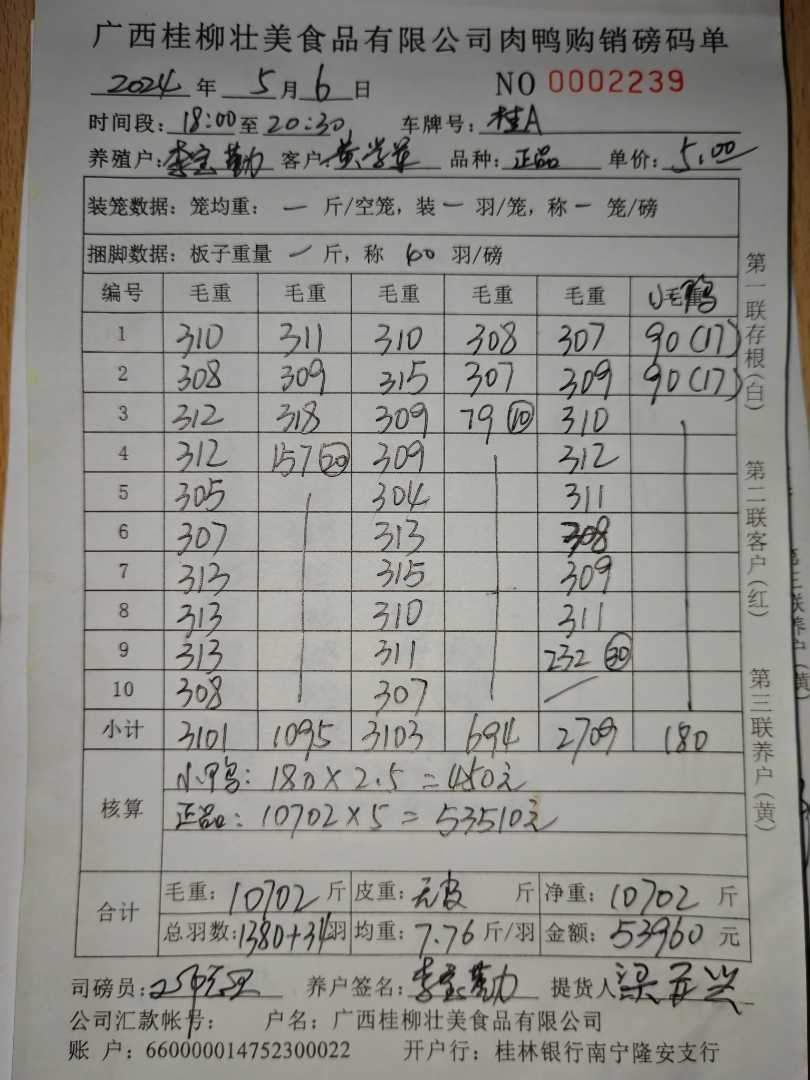 广西桂柳壮美食品有限公司肉鸭购销磅码单
2024 年 5 月 6 日 NO 0002239
时间段: 18:00 至 20:30 车牌号: 桂A
养殖户: 李宝勤 客户: 黄学军 品种: 正品 单价: 5.00
装笼数据: 笼均重: 一 斤/空笼, 装 一 羽/笼, 称 一 笼/磅
捆脚数据: 板子重量 一 斤, 称 60 羽/磅
编号 毛重 毛重 毛重 毛重 毛重 小鸭
1 310 311 310 308 307 90(17)
2 308 309 315 307 309 90(17)
3 312 318 309 79⑩ 310
4 312 157⑳ 309 312
5 305 304 311
6 307 313 308
7 313 315 309
8 313 310 311
9 313 311 232㉚
10 308 307
小计 3101 1095 3103 694 2709 180
核算
小鸭: 180×2.5=450元
正品: 10702×5=53510元
合计
毛重: 10702 斤 皮重: 无皮 斤 净重: 10702 斤
总羽数: 1380+34羽 均重: 7.76 斤/羽 金额: 53960 元
司磅员: 养户签名: 李宝勤 提货人 梁
公司汇款帐号: 户名: 广西桂柳壮美食品有限公司
账 户: 660000014752300022 开户行: 桂林银行南宁隆安支行
第一联存根(白)
第二联客户(红)
第三联养户(黄)